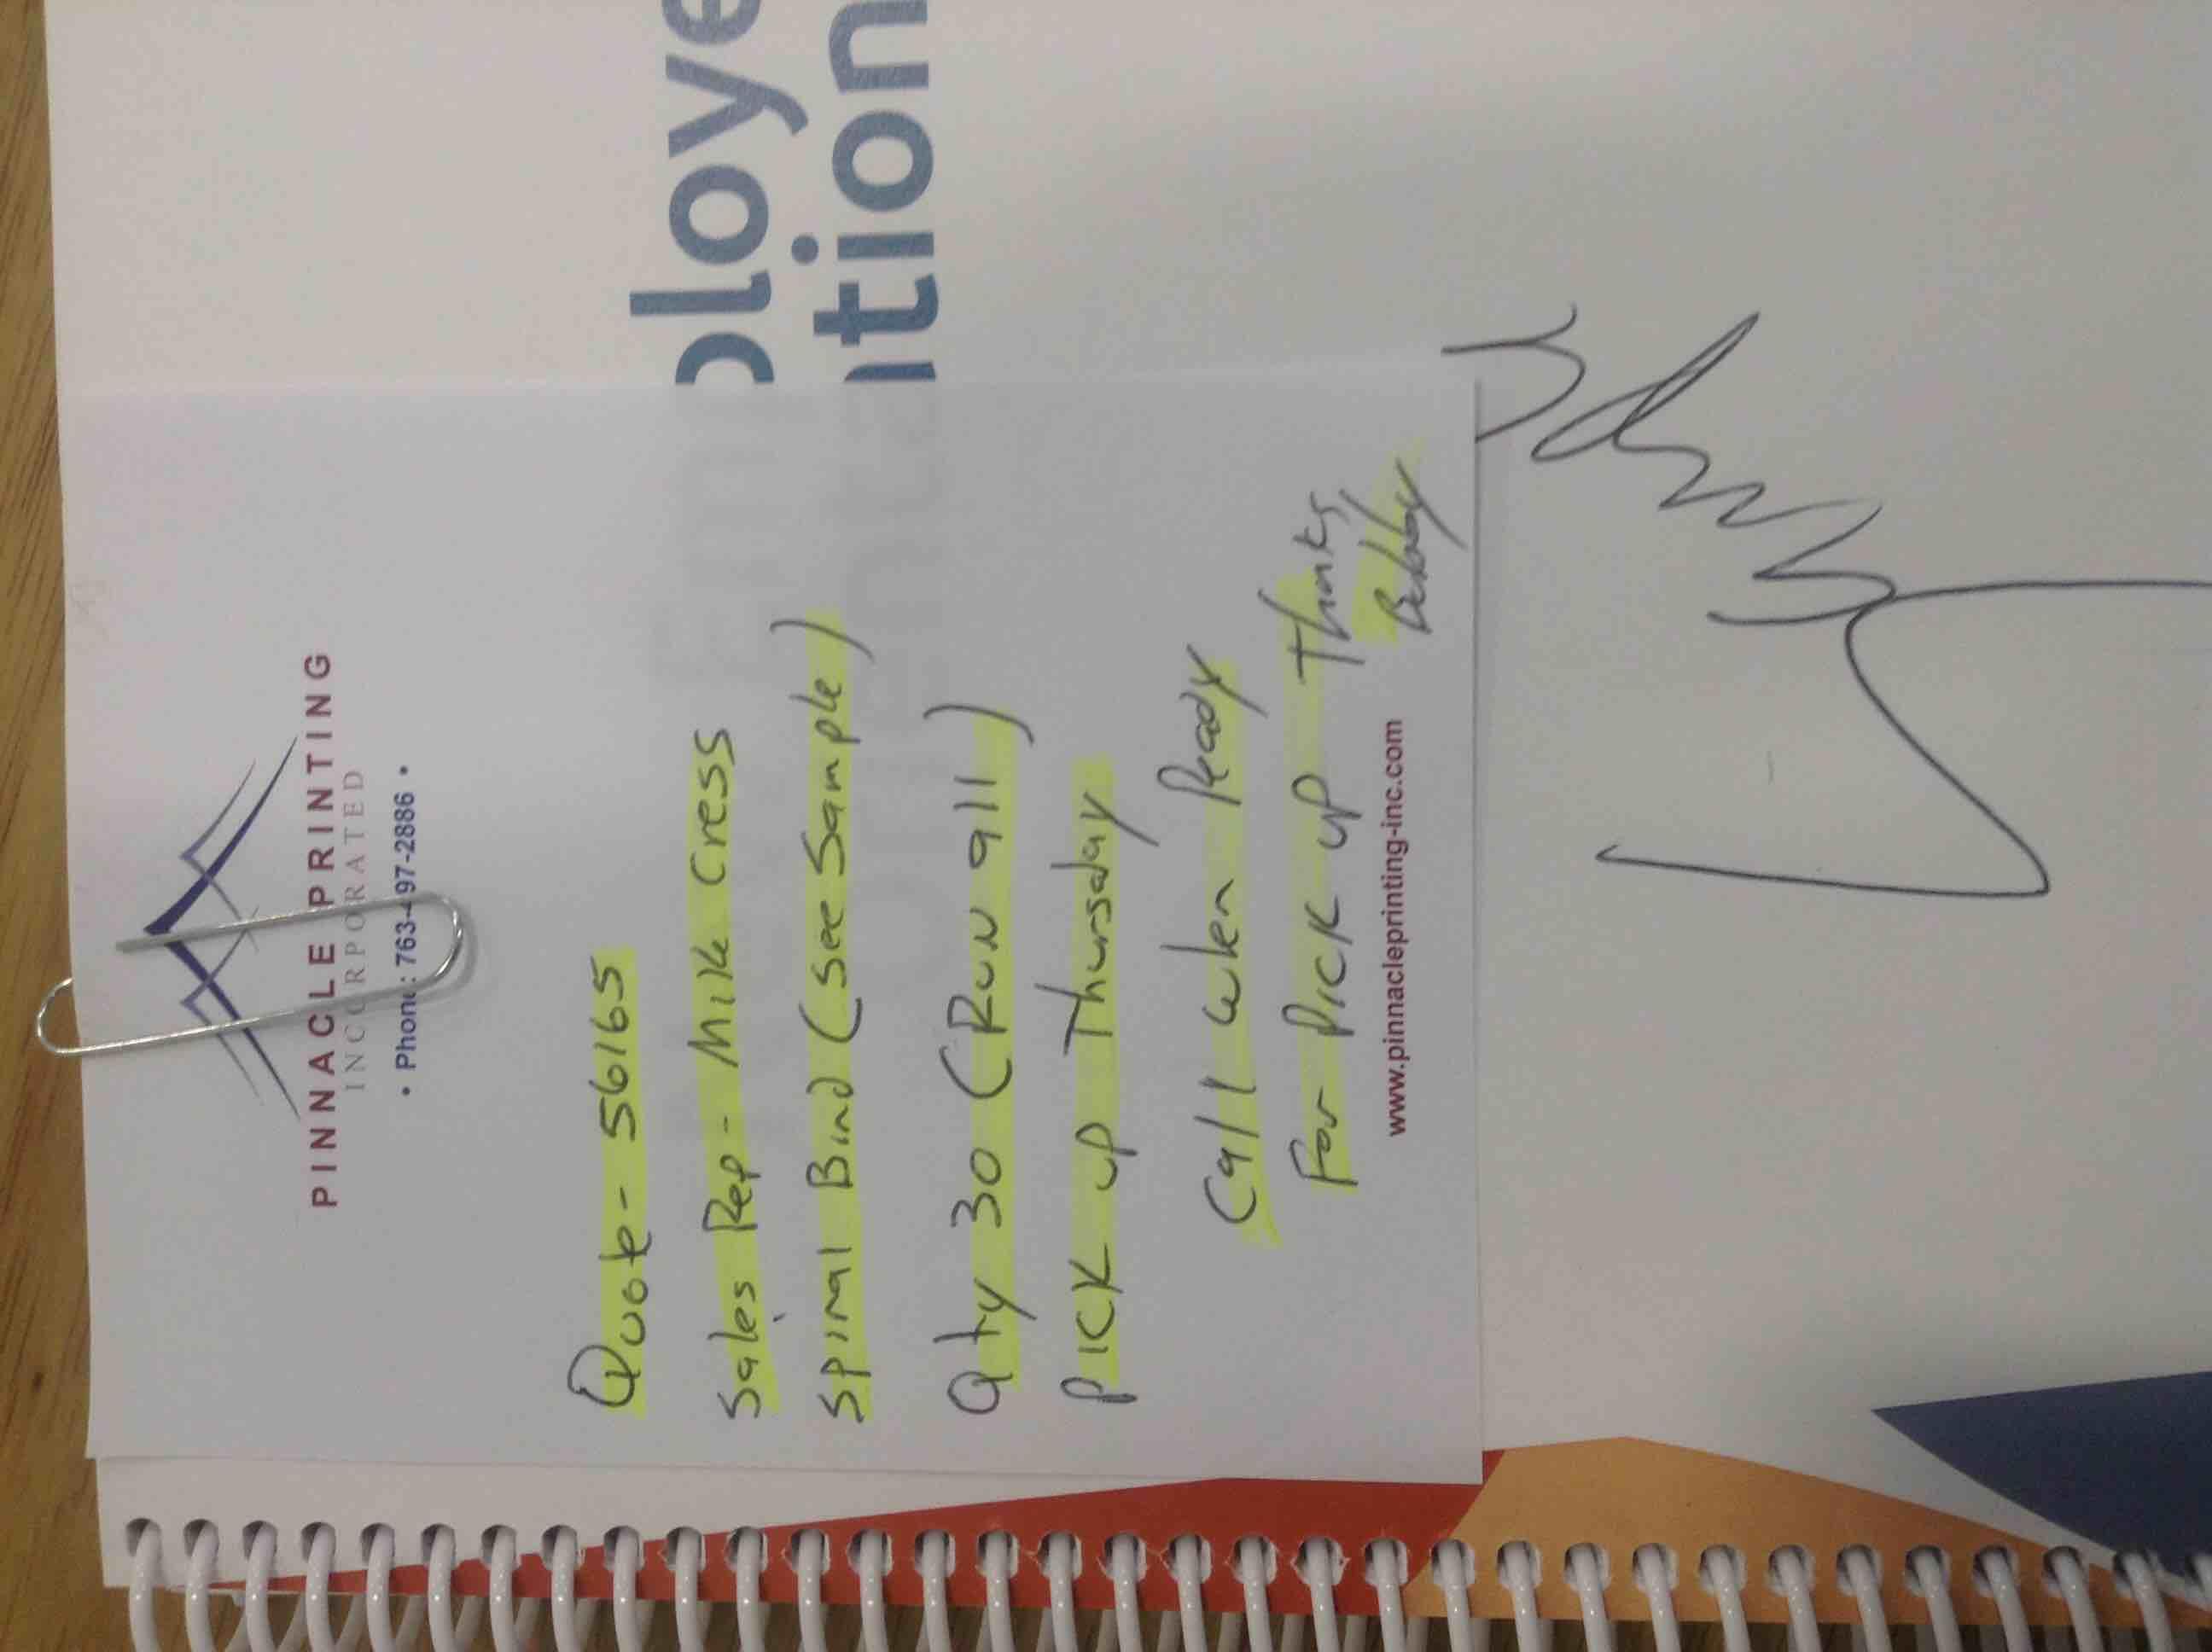 PINNACLE PRINTING
INCORPORATED
• Phone: 763-497-2886 •
Quote - 56165
Sales Rep - Mike Cress
Spiral Bind (see Sample)
Qty 30 (Run all)
Pick up Thursday
Call when Ready
For Pick up Thanks,
Bobby
www.pinnacleprinting-inc.com
ploye
ation